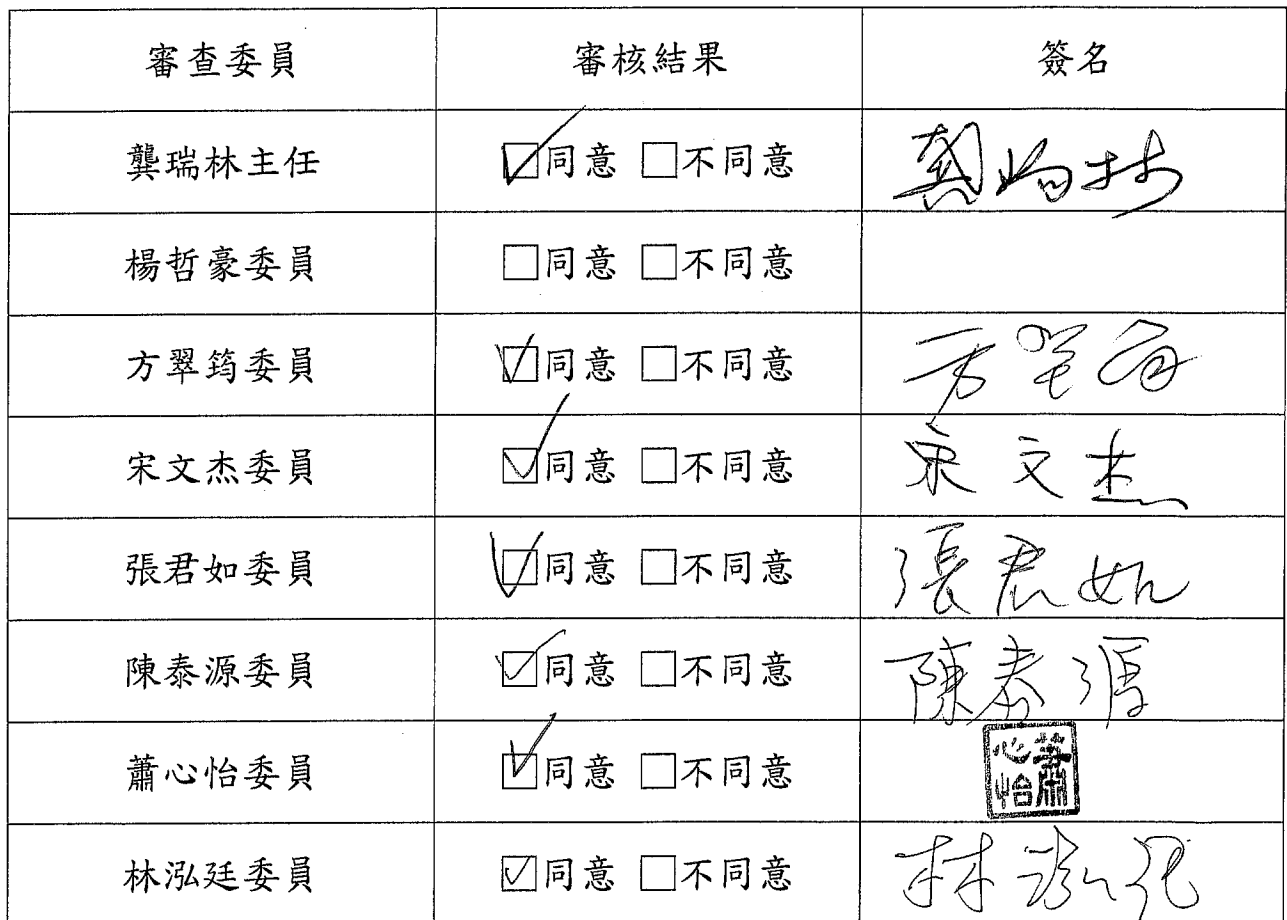 審查委員 審核結果 簽名
龔瑞林主任 ☑同意 □不同意 龔瑞林
楊哲豪委員 □同意 □不同意
方翠筠委員 ☑同意 □不同意 方翠筠
宋文杰委員 ☑同意 □不同意 宋文杰
張君如委員 ☑同意 □不同意 張君如
陳泰源委員 ☑同意 □不同意 陳泰源
蕭心怡委員 ☑同意 □不同意 蕭心怡
林泓廷委員 ☑同意 □不同意 林泓廷